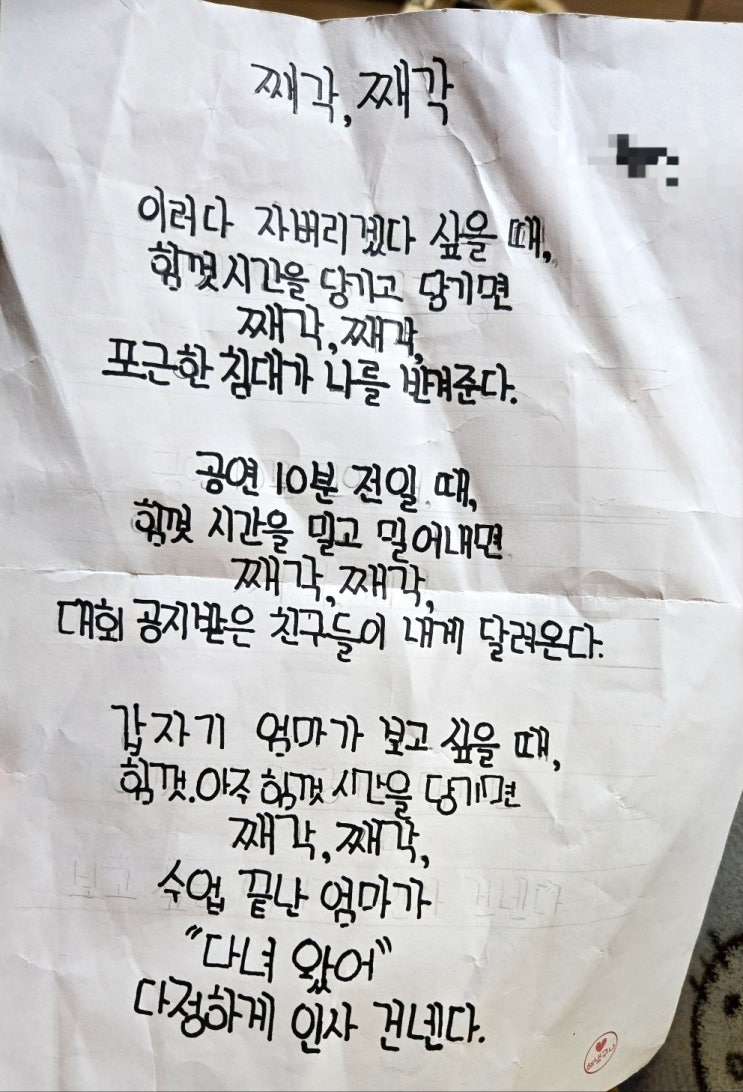 째각, 째각
이러다 자버리겠다 싶을 때,
힘껏 시간을 당기고 당기면
째각, 째각,
포근한 침대가 나를 반겨준다.
공연 10분 전일 때,
힘껏 시간을 밀고 밀어내면
째각, 째각,
대회 공지받은 친구들이 내게 달려온다.
갑자기 엄마가 보고 싶을 때,
힘껏. 아주 힘껏 시간을 당기면
째각, 째각,
수업 끝난 엄마가
"다녀 왔어"
다정하게 인사 건넨다.